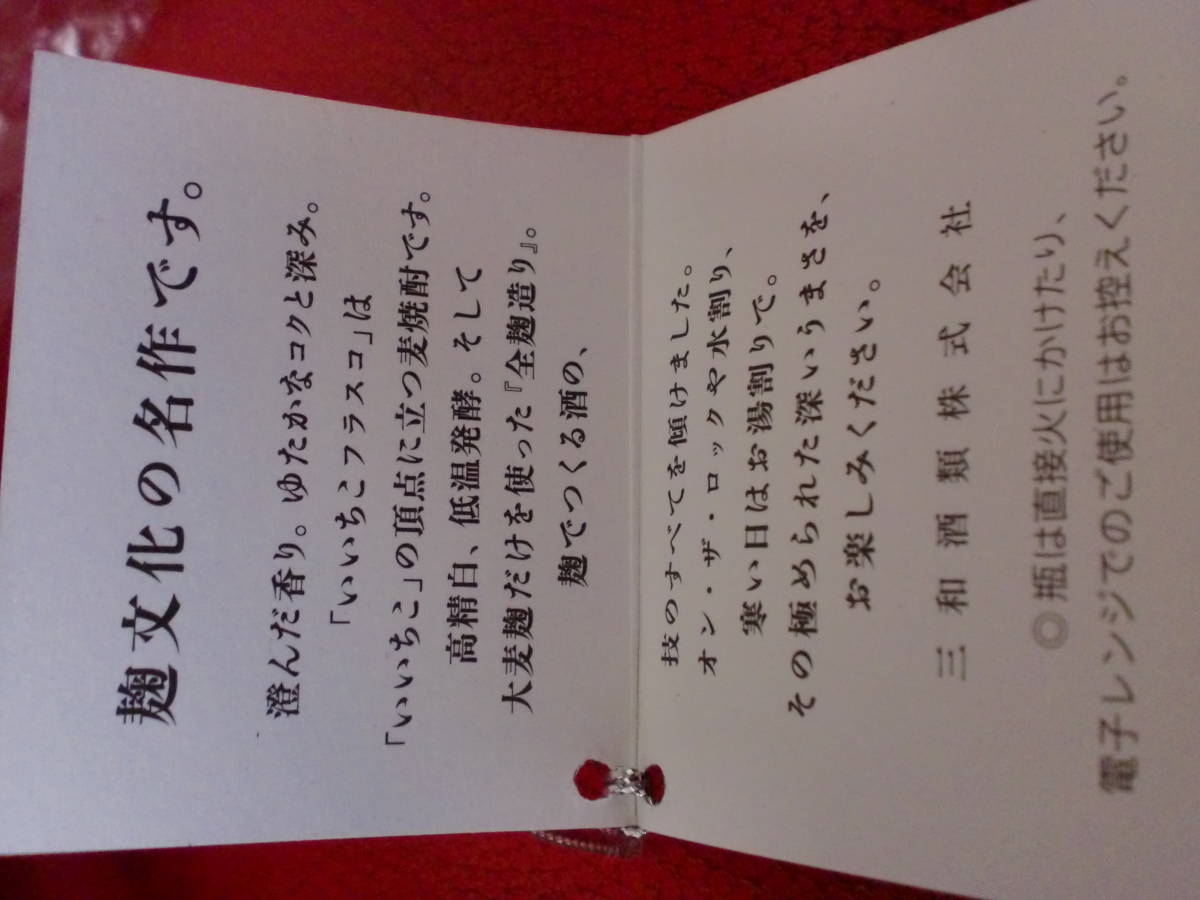 麹文化の名作です。
澄んだ香り。ゆたかなコクと深み。
「いいちこフラスコ」は
「いいちこ」の頂点に立つ麦焼酎です。
高精白、低温発酵。そして
大麦麹だけを使った『全麹造り』。
麹でつくる酒の、
技のすべてを傾けました。
オン・ザ・ロックや水割り、
寒い日はお湯割りで。
その極められた深いうまさを、
お楽しみください。
三和酒類株式会社
◎瓶は直接火にかけたり、
電子レンジでのご使用はお控えください。